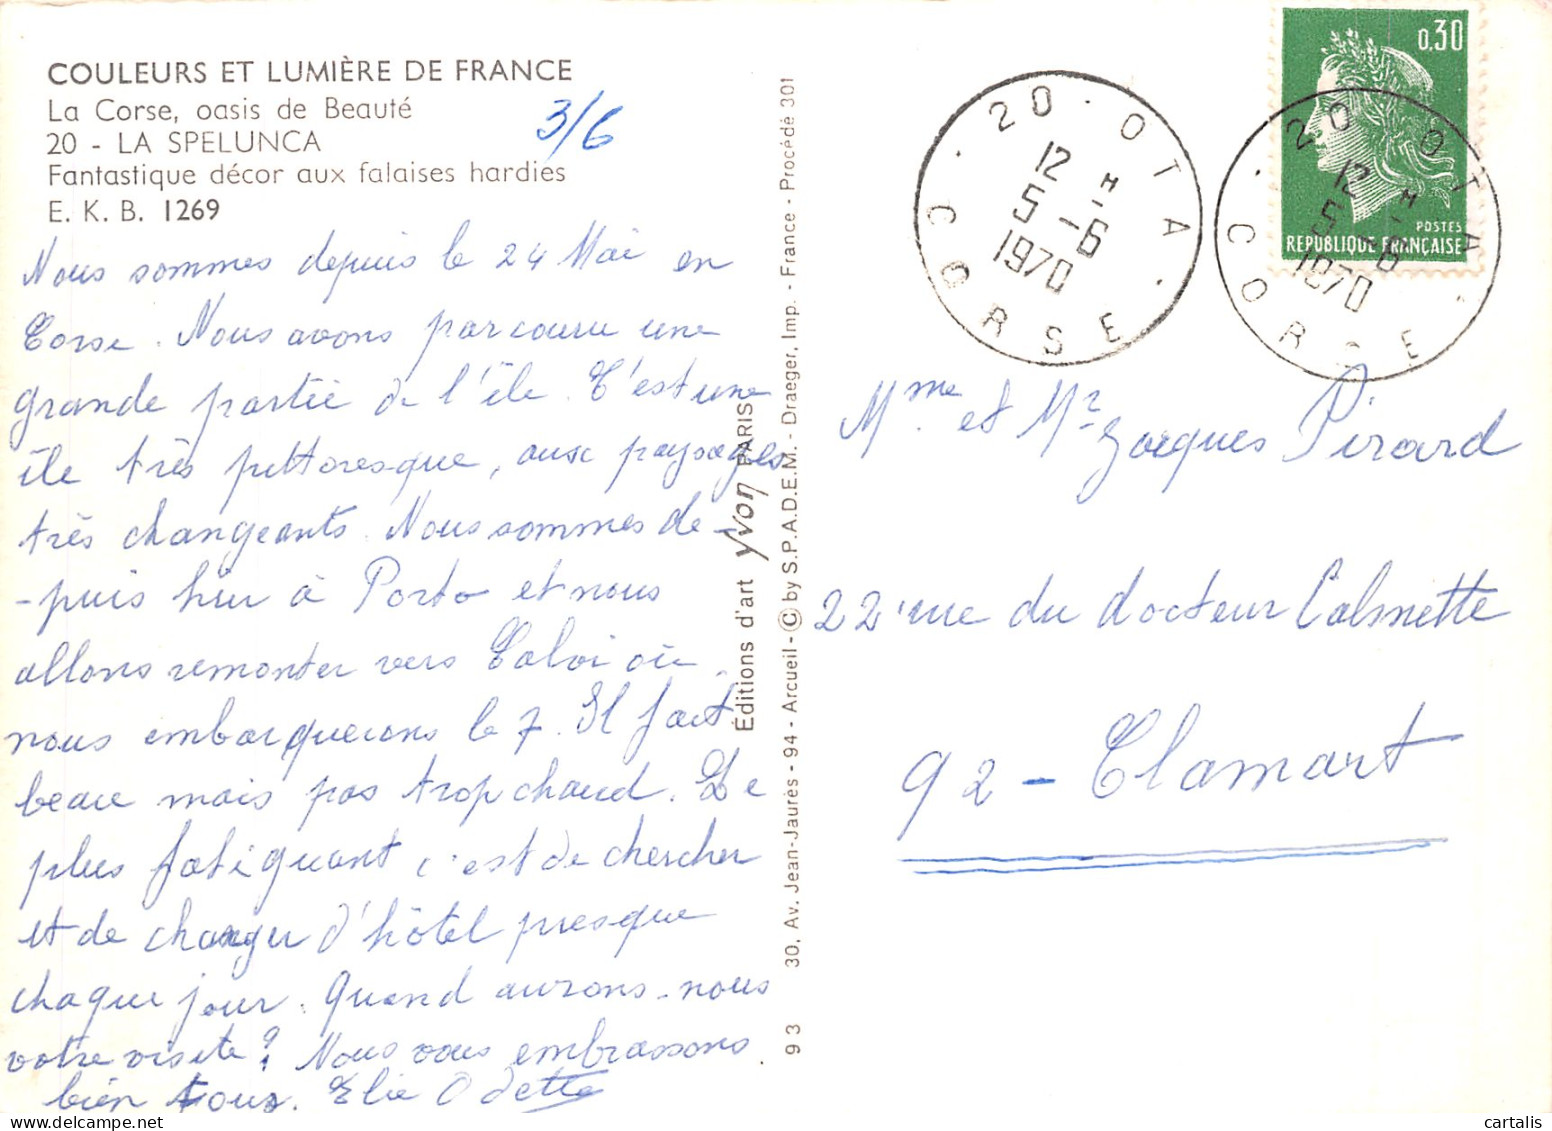 COULEURS ET LUMIÈRE DE FRANCE
La Corse, oasis de Beauté
20 - LA SPELUNCA
Fantastique décor aux falaises hardies
E. K. B. 1269
3/6
Nous sommes depuis le 24 Mai en
Corse. Nous avons parcouru une
grande partie de l'île. C'est une
île très pittoresque, aux paysages
très changeants. Nous sommes de-
-puis hier à Porto et nous
allons remonter vers Calvi où
nous embarquerons le 7. Il fait
beau mais pas trop chaud. Le
plus fatiguant c'est de chercher
et de changer d'hôtel presque
chaque jour. Quand aurons-nous
votre visite? Nous vous embrassons
bien tous. Elie Odette
Éditions d'art yvon PARIS
93 30, Av. Jean-Jaurès - 94 - Arcueil - © by S.P.A.D.E.M. - Draeger, Imp. - France - Procédé 301
20 · OTA · CORSE
12 H
5 -6
1970
0,30
POSTES
REPUBLIQUE FRANÇAISE
20 OTA · CORSE
12 H
5 -6
1970
Mme et Mr Jacques Pirard
22 rue du docteur Calmette
92 - Clamart
© cartalis